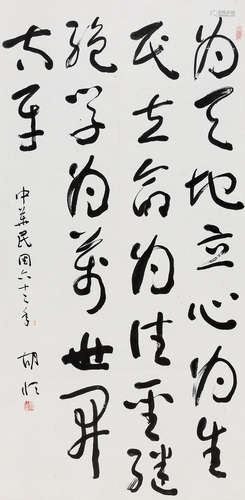 為天地立心為生
民立命為往聖繼
絕學為萬世開
太平
中華民國六十年
胡